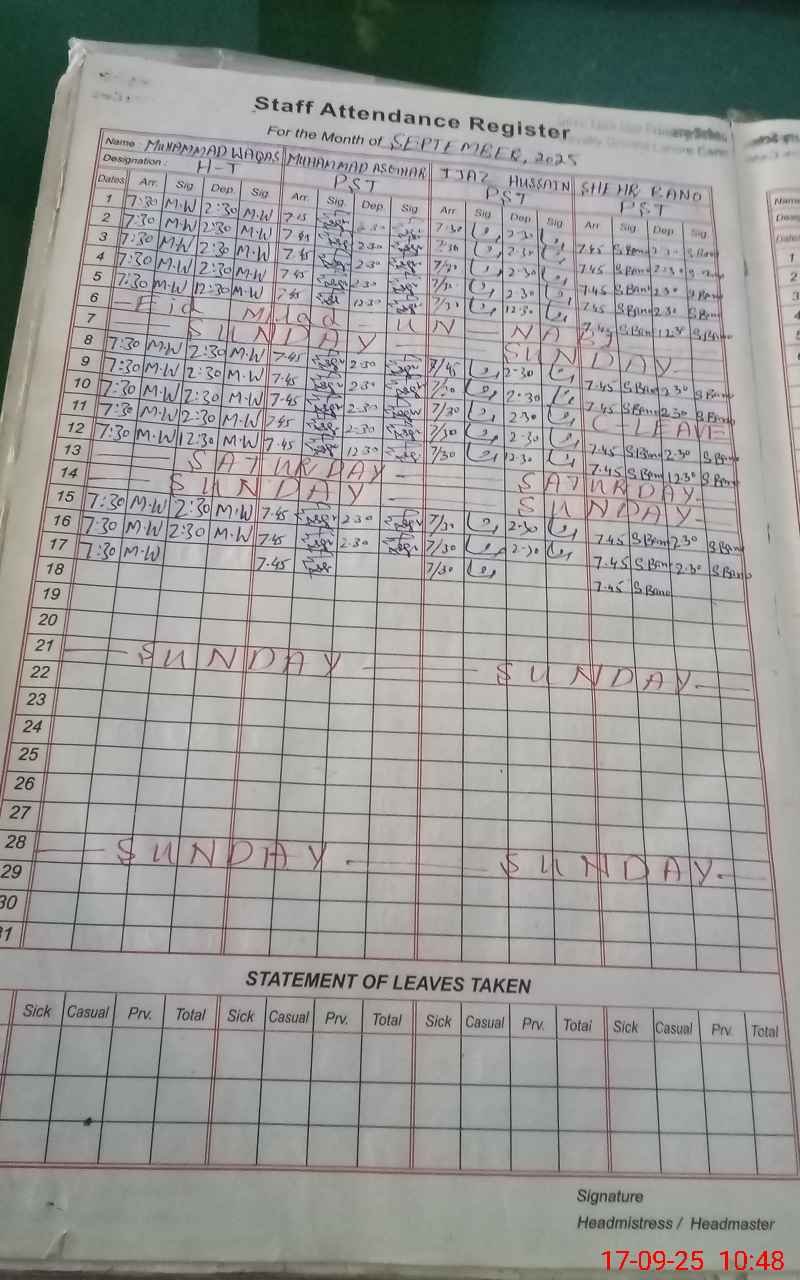 Staff Attendance Register
For the Month of SEPTEMBER, 2025
Name: MUHAMMAD WAQAS MUHAMMAD ASGHAR IJAZ HUSSAIN SHEHR BANO
Designation: H-T PST PST PST
Dates Arr. Sig Dep. Sig. Arr. Sig. Dep. Sig Arr Sig Dep Sig Arr Sig. Dep. Sig.
1 7:30 M.W 2:30 M.W 7.45 2.30 7.30 2.30 7.45 S.Bano 2.30 S.Bano
2 7:30 M.W 2:30 M.W 7.45 2.30 7/30 2.30 7.45 S.Bano 2.30 S.Bano
3 7:30 M.W 2:30 M.W 7.45 2.30 7/30 2.30 7.45 S.Bano 2.30 S.Bano
4 7:30 M.W 2:30 M.W 7.45 2.30 7/30 2.30 7.45 S.Bano 2.30 S.Bano
5 7:30 M.W 12:30 M.W 7.45 12.30 7/30 12.30 7.45 S.Bano 12.30 S.Bano
6 Eid Milad UN NABY
7 SUNDAY SUNDAY
8 7:30 M.W 2:30 M.W 7.45 2.30 7/45 2.30 7.45 S.Bano 2.30 S.Bano
9 7:30 M.W 2:30 M.W 7.45 2.30 7/30 2.30 7.45 S.Bano 2.30 S.Bano
10 7:30 M.W 2:30 M.W 7.45 2.30 7/30 2.30 C-LEAVE
11 7:30 M.W 2:30 M.W 7.45 2.30 7/30 2.30 7.45 S.Bano 2.30 S.Bano
12 7:30 M.W 12:30 M.W 7.45 12.30 7/30 12.30 7.45 S.Bano 12.30 S.Bano
13 SATURDAY SATURDAY
14 SUNDAY SUNDAY
15 7:30 M.W 2:30 M.W 7.45 2.30 7/30 2.30 7.45 S.Bano 2.30 S.Bano
16 7:30 M.W 2:30 M.W 7.45 2.30 7/30 2.30 7.45 S.Bano 2.30 S.Bano
17 7:30 M.W 7.45 7/30 7.45 S.Bano
18
19
20
21 SUNDAY SUNDAY
22
23
24
25
26
27
28 SUNDAY SUNDAY
29
30
31
STATEMENT OF LEAVES TAKEN
Sick Casual Prv. Total Sick Casual Prv. Total Sick Casual Prv. Total Sick Casual Prv. Total
Signature
Headmistress / Headmaster
17-09-25 10:48